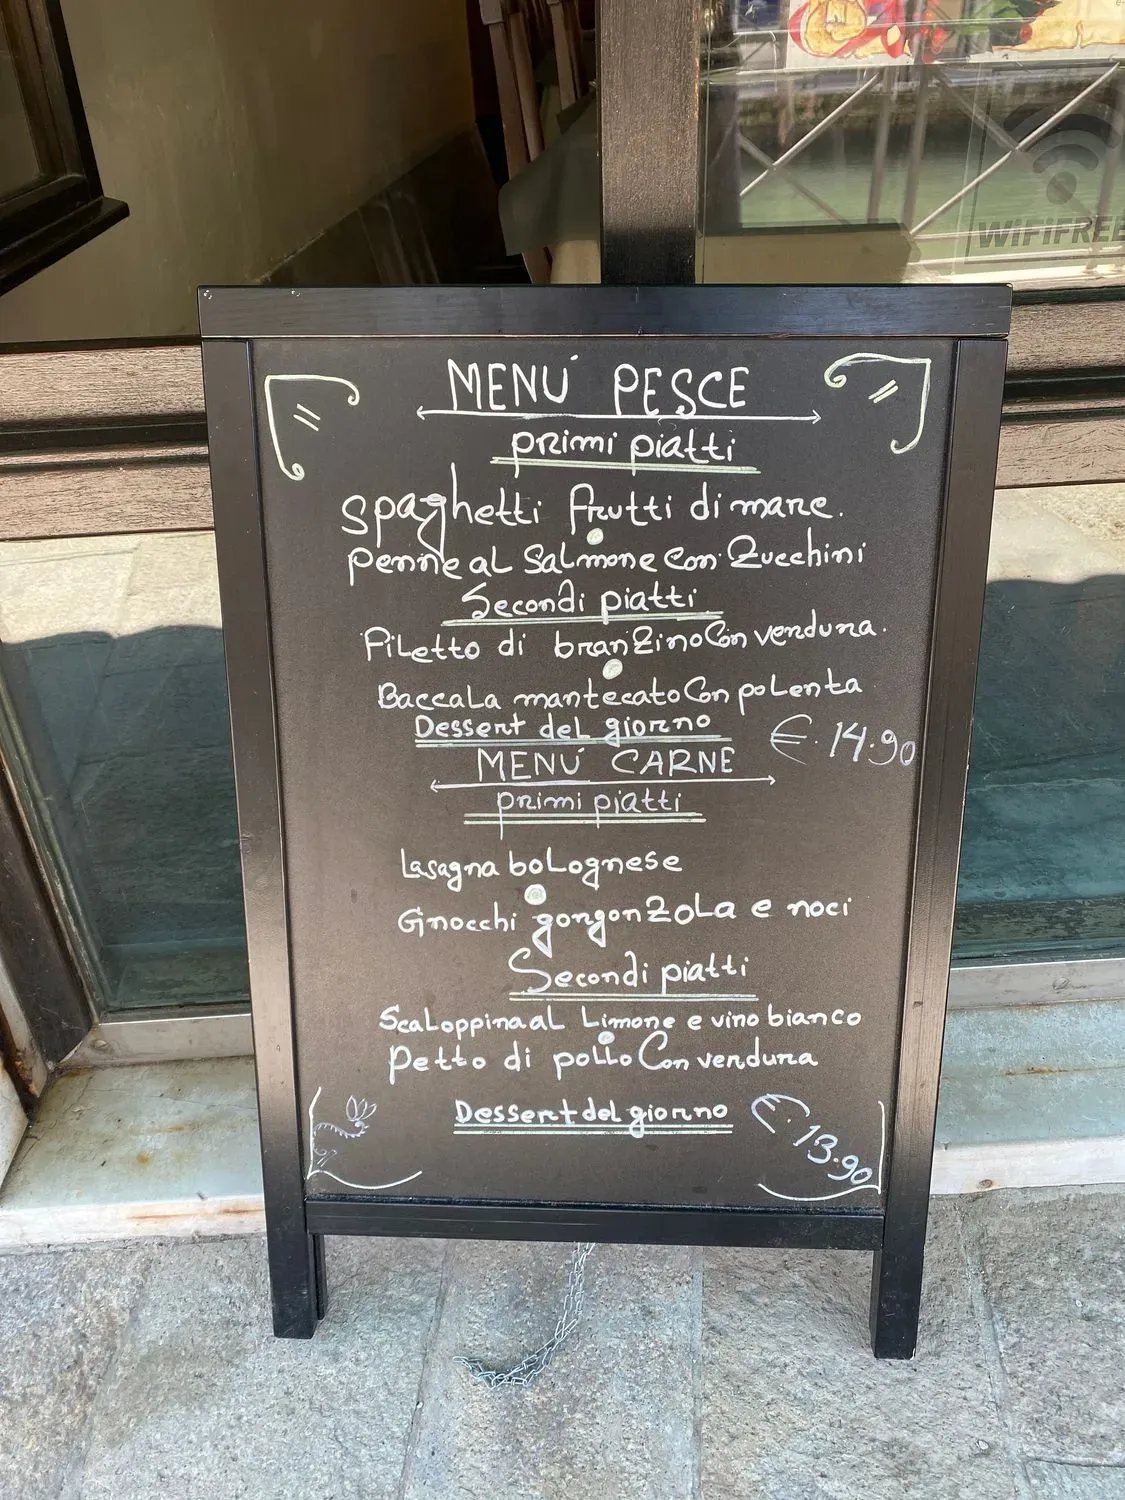 WiFiFREE
MENÚ PESCE
primi piatti
Spaghetti frutti di mare.
Penne al Salmone Con Zucchini
Secondi piatti
Filetto di branzino Con verdura.
Baccala mantecato Con polenta
Dessert del giorno
€.14.90
MENÚ CARNE
primi piatti
Lasagna bolognese
Gnocchi gorgonzola e noci
Secondi piatti
Scaloppina al Limone e vino bianco
Petto di pollo Con verdura
Dessert del giorno
€.13.90